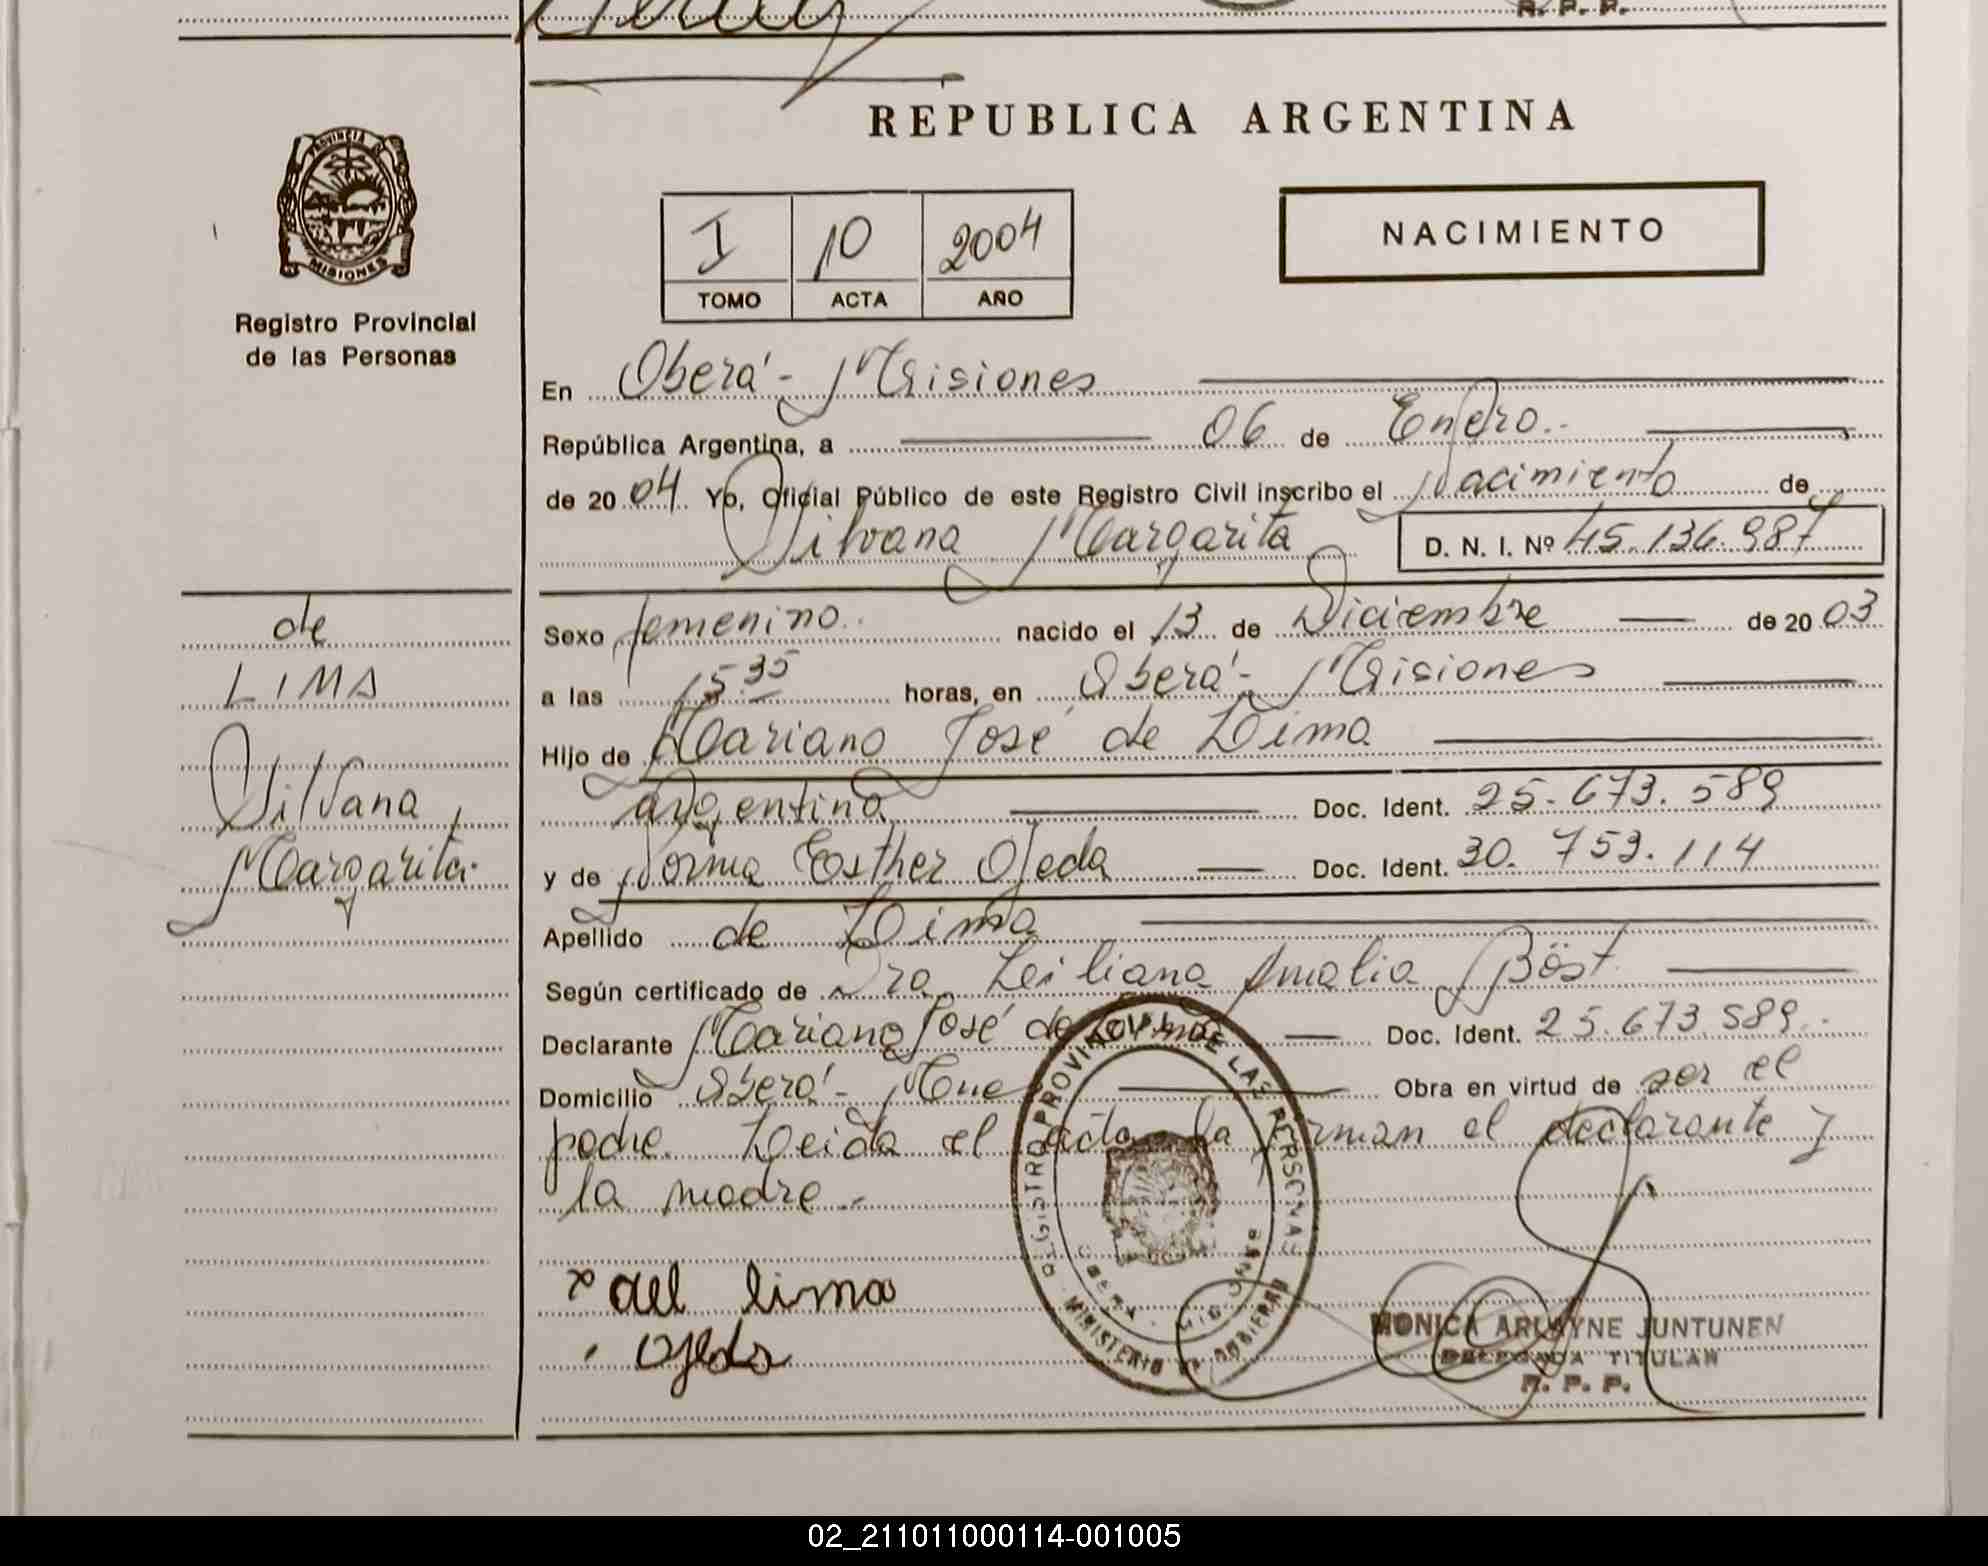 R. P. P.
REPUBLICA ARGENTINA
PROVINCIA DE
MISIONES
Registro Provincial
de las Personas
I 10 2004
TOMO ACTA AÑO
NACIMIENTO
En Oberá - Misiones
República Argentina, a 06 de Enero.-
de 2004. Yo, Oficial Público de este Registro Civil inscribo el Nacimiento de
Silvana Margarita D. N. I. Nº 45.136.987
Sexo femenino.. nacido el 13 de Diciembre de 2003
a las 15.35 horas, en Oberá - Misiones
Hijo de Mariano José de Lima
argentina Doc. Ident. 25.673.589
y de Norma Esther Ojeda Doc. Ident. 30.753.114
Apellido de Lima
Según certificado de Dra. Leiliana Amalia Böst
Declarante Mariano José de Lima Doc. Ident. 25.673.589.-
Domicilio Oberá - Mnes Obra en virtud de ser el
padre. Leida el acta la firman el declarante y
la madre.-
de
LIMA
Silvana
Margarita.
REGISTRO PROVINCIAL DE LAS PERSONAS
MINISTERIO DE GOBIERNO
OBERA - MISIONES
del lima
ojeda
MONICA ARLAYNE JUNTUNEN
DELEGADA TITULAR
R. P. P.
02_211011000114-001005